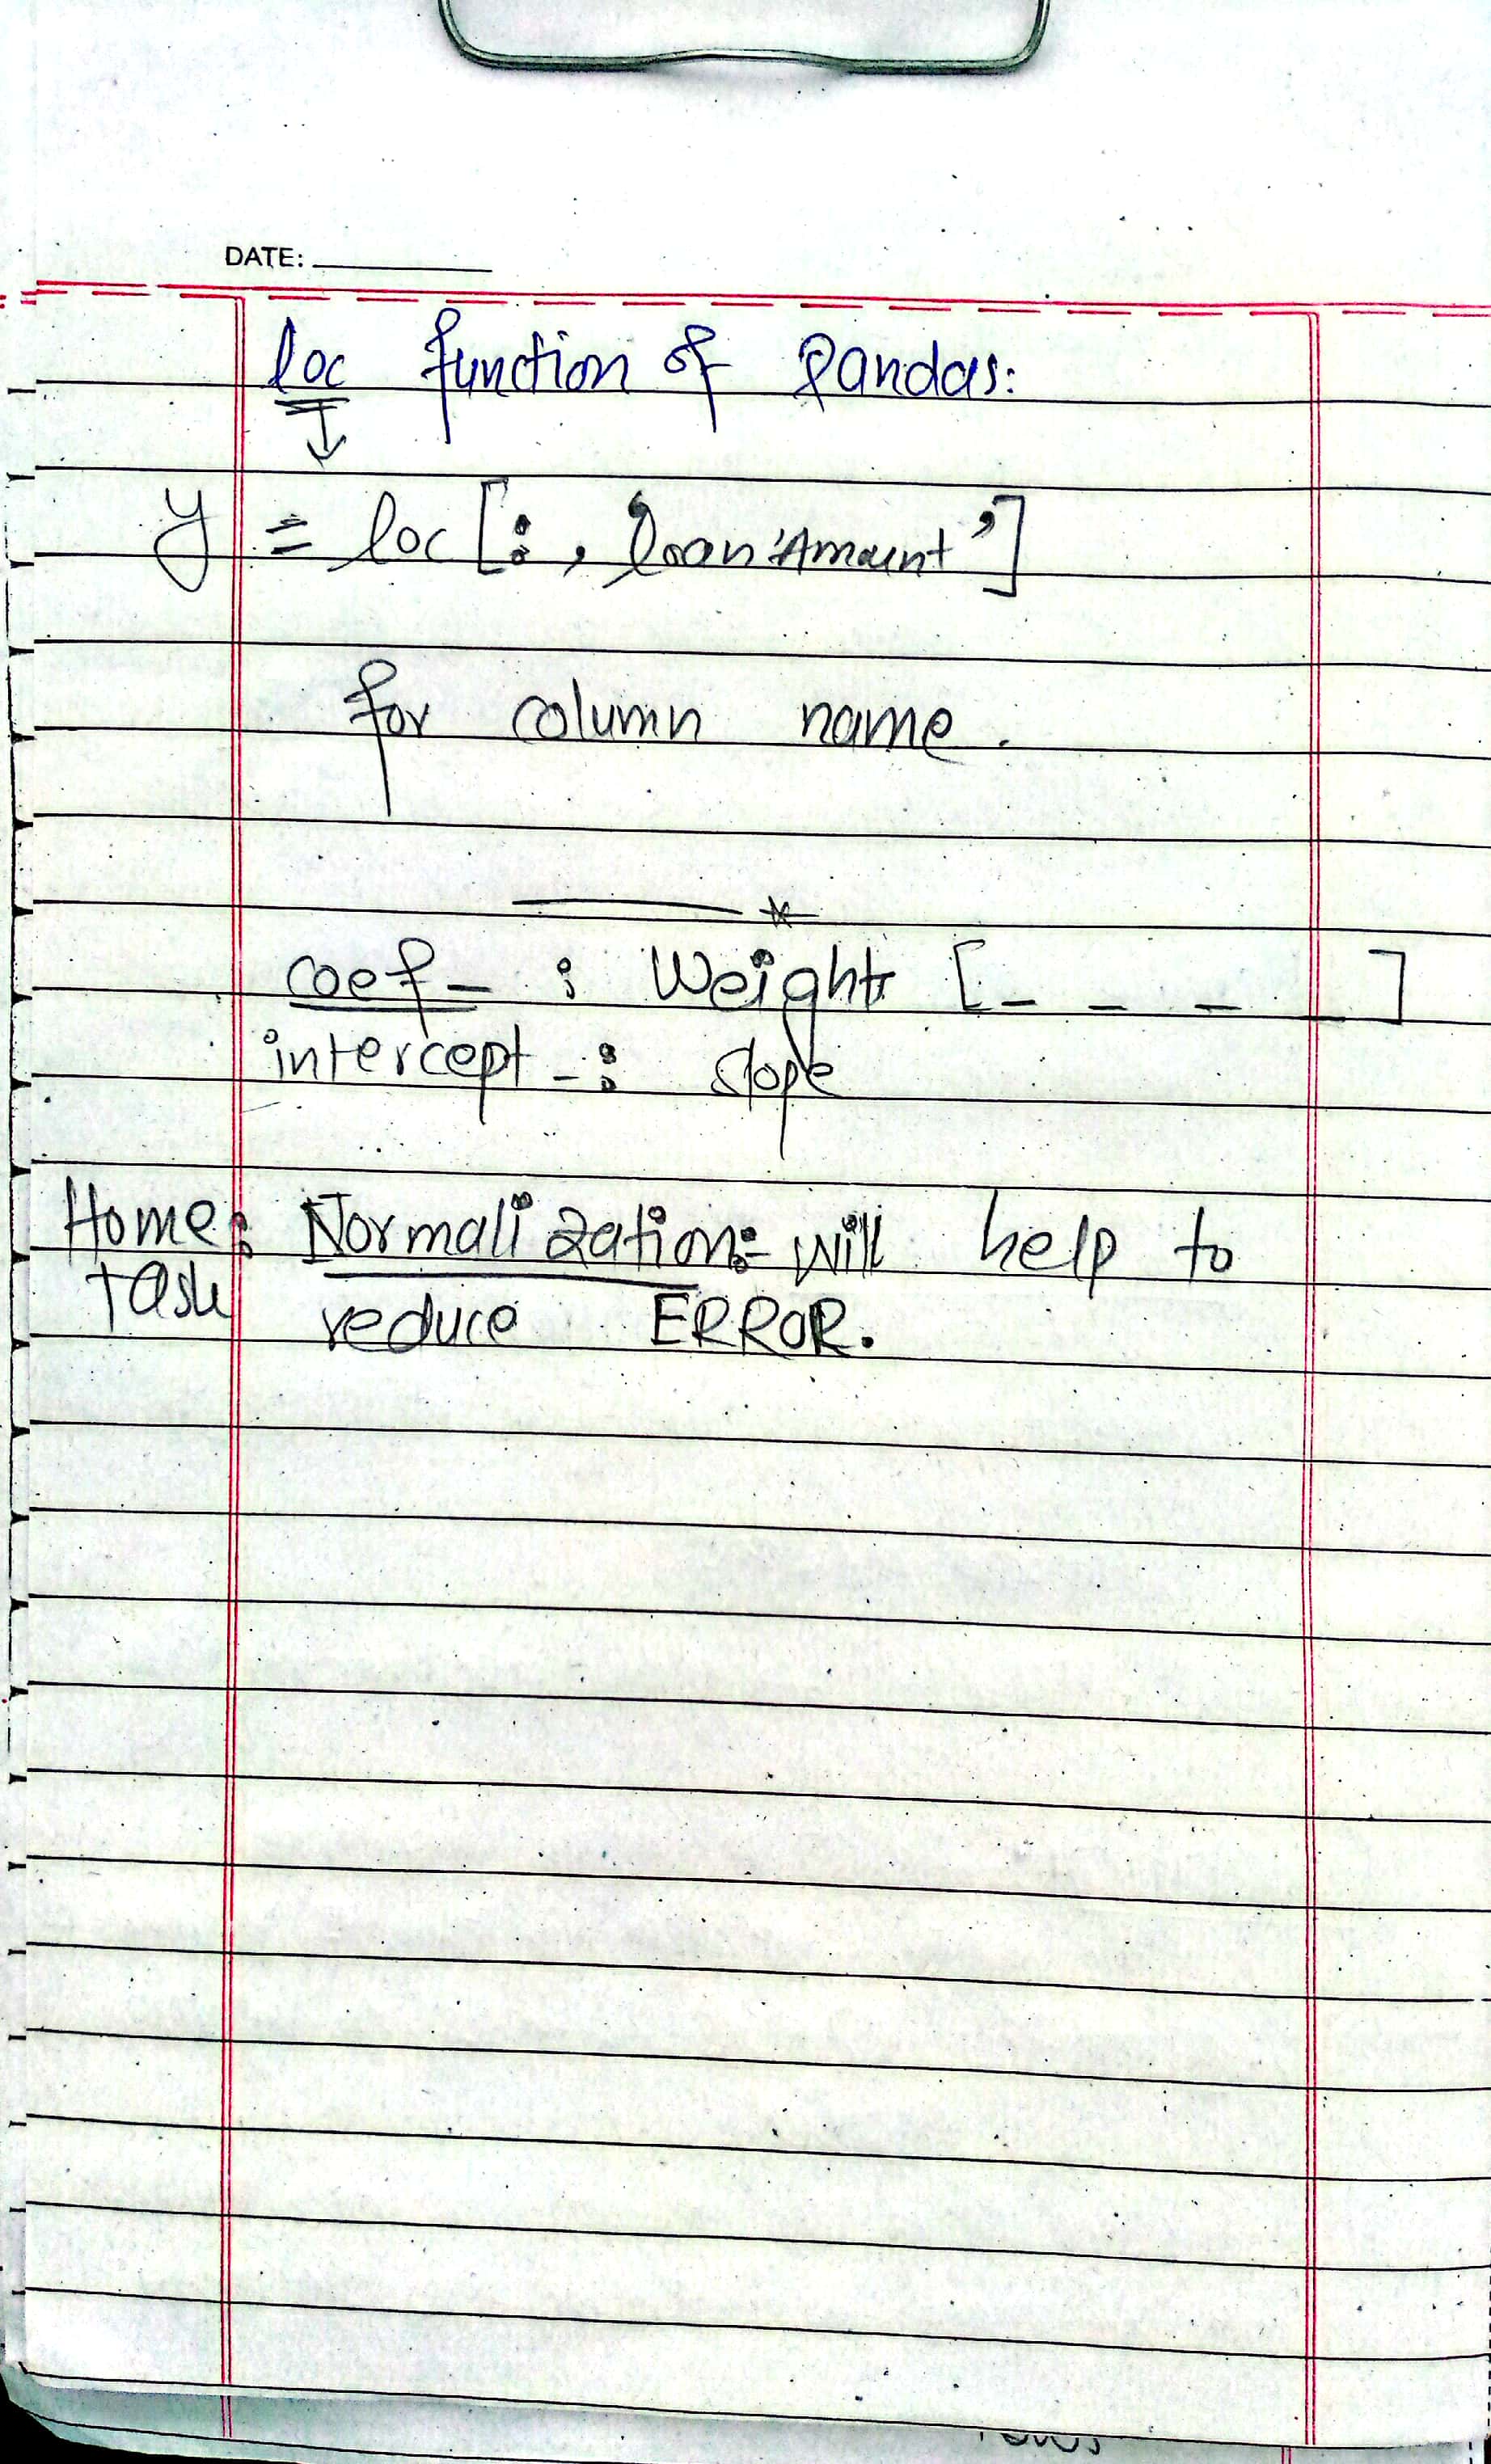 DATE:
loc function of Pandas:
y = loc [: , 'loan Amount']
for column name.
coef_ : Weights [_ _ _ _]
intercept_: slope
Home: Normalization:- will help to
Task reduce ERROR.